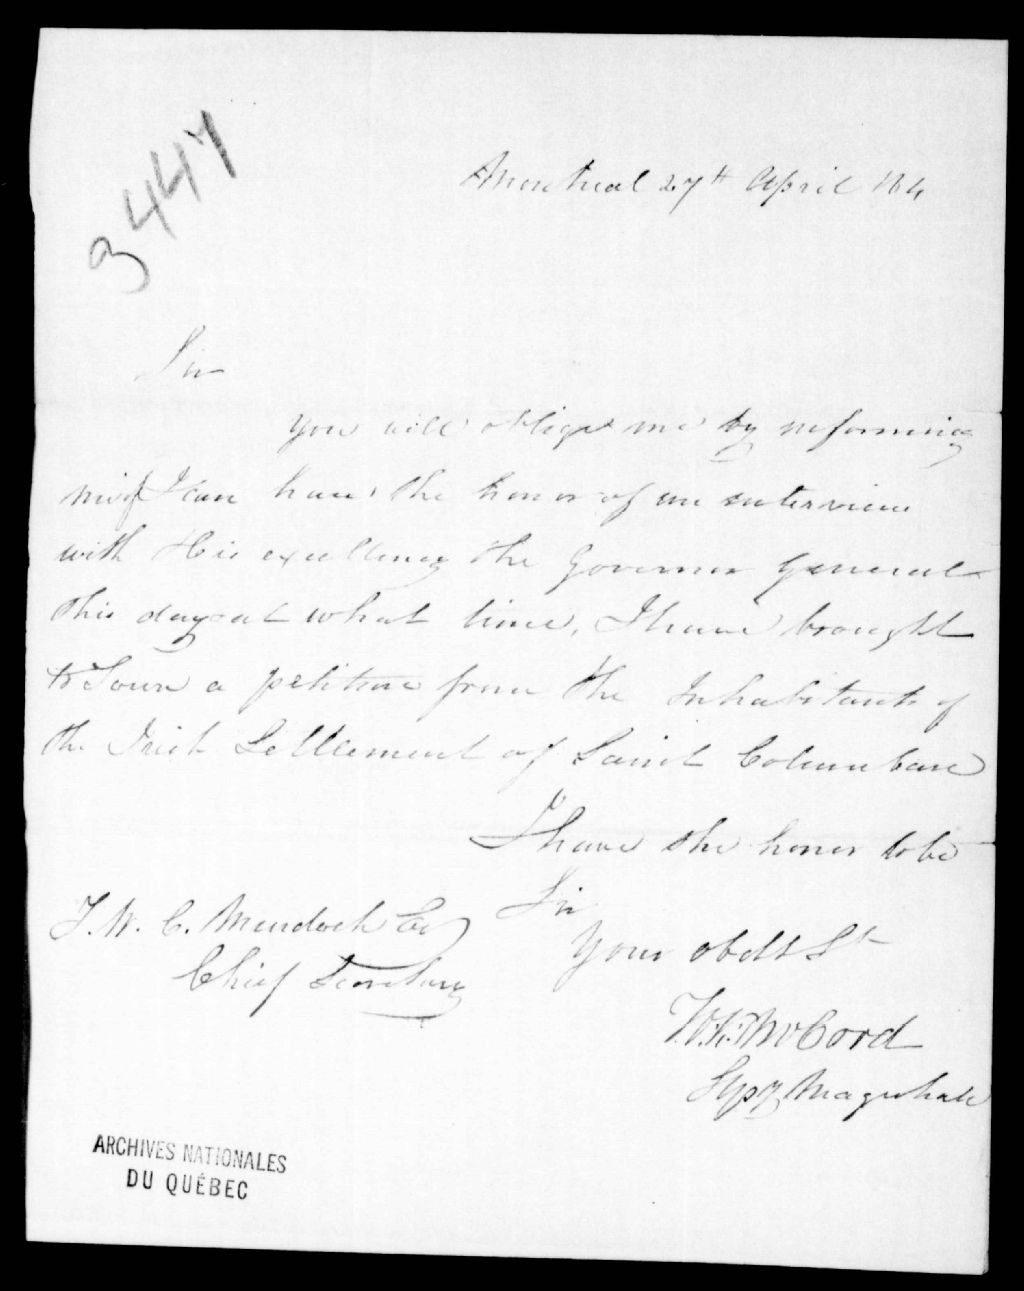 3447
Montreal 27th April 184
Sir
You will oblige me by informing
me if I can have the honor of an interview
with His excellency the Governor General
this day & at what time, I have brought
to Town a petition from the Inhabitants of
the Irish Settlement of Saint Columban
I have the honor to be
Sir
Your obdt St
McCord
Magistrate
T. W. C. Murdoch Esq
Chief Secretary
ARCHIVES NATIONALES
DU QUÉBEC